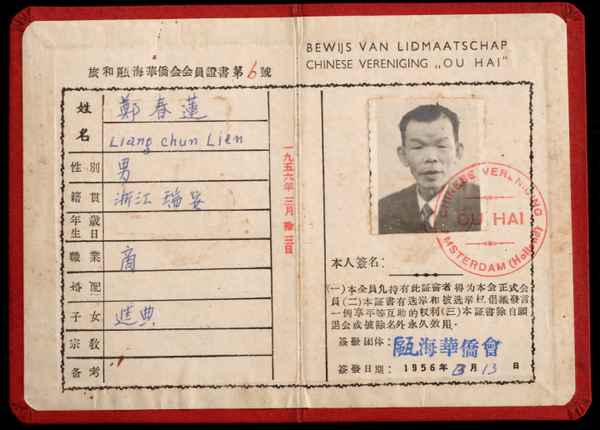 旅和甌海華僑会会員證書第6號
姓名 鄭春蓮
Liang Chun Lien
性別 男
籍貫 浙江瑞安
年歲生日
職業 商
婚配
子女
宗教
備考
一九五六年三月拾三日
BEWIJS VAN LIDMAATSCHAP
CHINESE VERENIGING „OU HAI"
CHINESE VERENIGING
OU HAI
AMSTERDAM (Holland)
本人簽名：
(一)本会員凡持有此証書者得为本会正式会
員(二)本証書有选举和被选举权倡議發言
一例享平等互助的权利(三)本証書除自願
退会或被除名外永久效用。
簽發团体：甌海華僑會
簽發日期：1956年3月13日